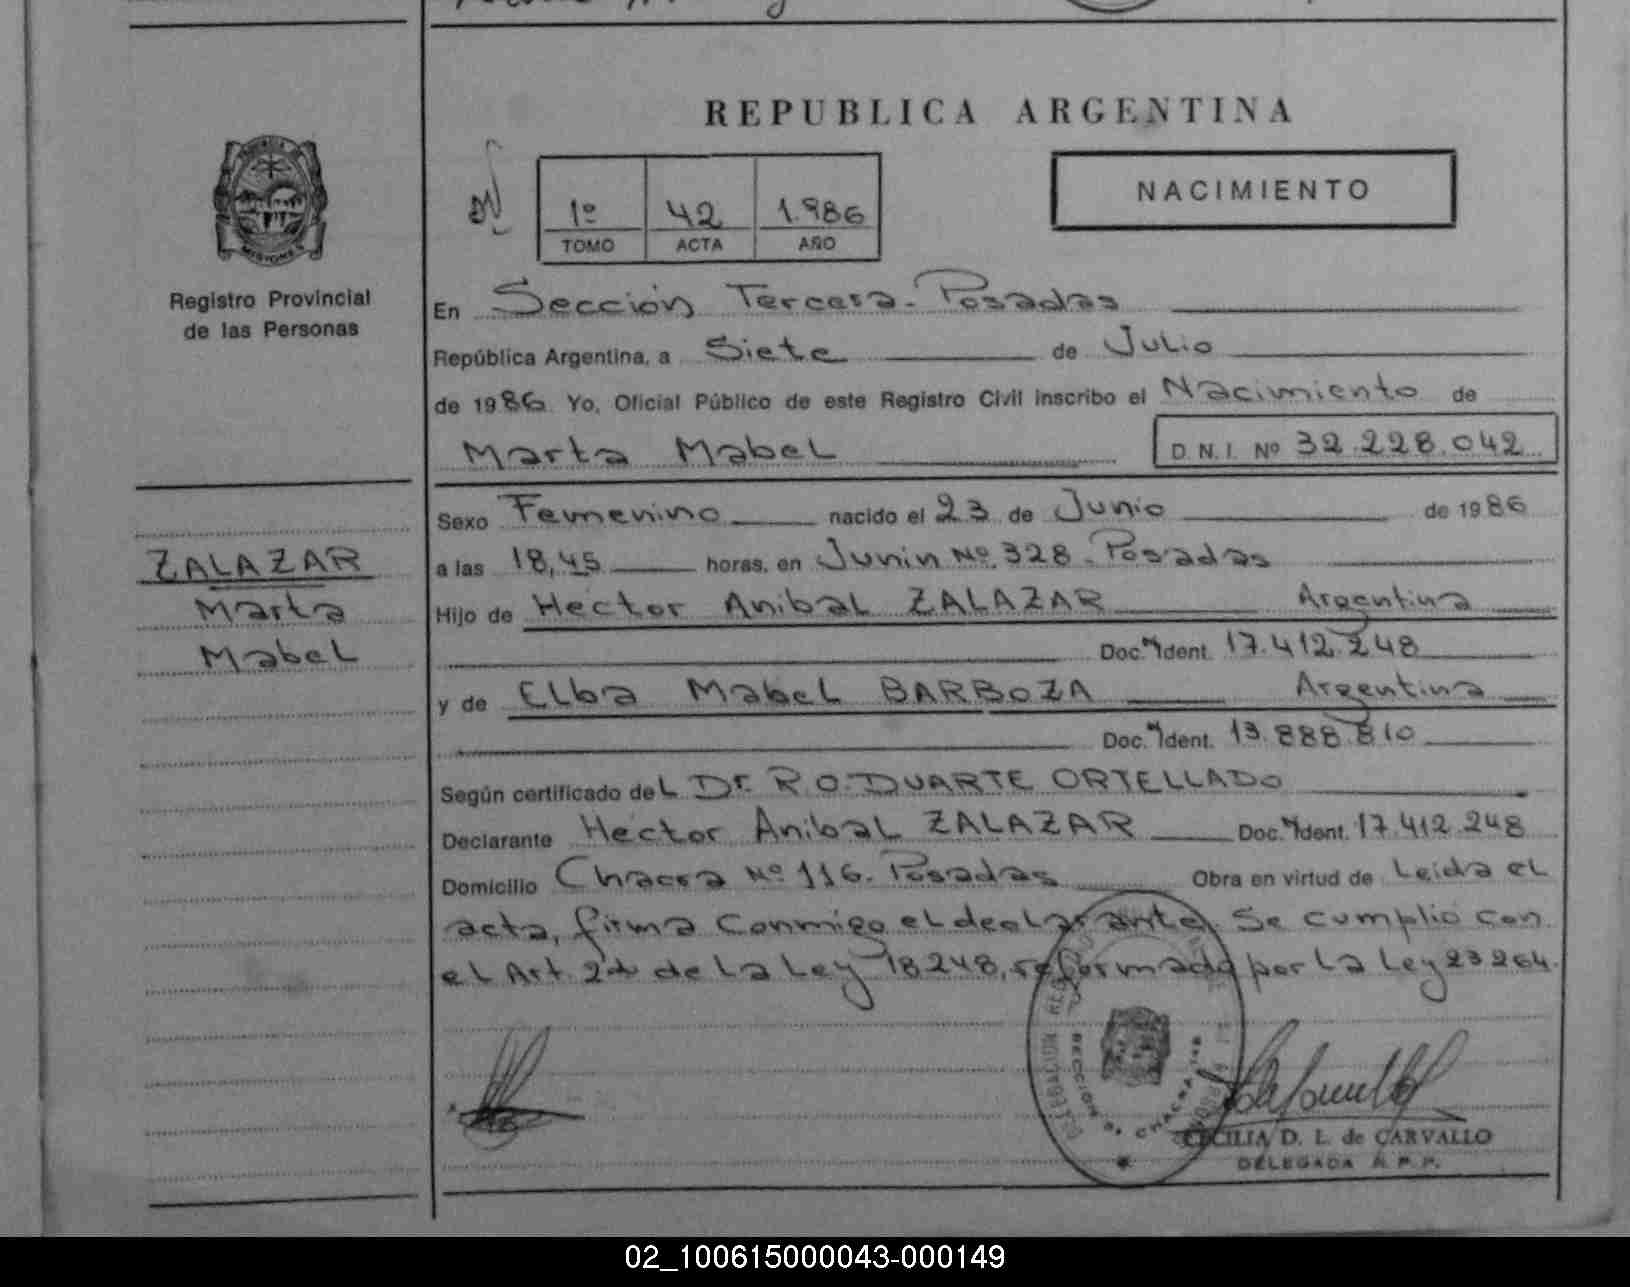 REPUBLICA ARGENTINA
MISIONES
Registro Provincial
de las Personas
1º 42 1.986
TOMO ACTA AÑO
NACIMIENTO
En Sección Tercera - Posadas
República Argentina, a Siete de Julio
de 1986 Yo, Oficial Público de este Registro Civil inscribo el Nacimiento de
Marta Mabel D. N. I. Nº 32.228.042
Sexo Femenino nacido el 23 de Junio de 1986
a las 18,45 horas, en Junin Nº 328 - Posadas
Hijo de Hector Anibal ZALAZAR Argentina
Doc. Ident. 17.412.248
y de Elba Mabel BARBOZA Argentina
Doc. Ident. 13.888.810
Según certificado del Dr. R.O. DUARTE ORTELLADO
Declarante Hector Anibal ZALAZAR Doc. Ident. 17.412.248
Domicilio Chacra Nº 116 - Posadas Obra en virtud de Leida el
acta, firma conmigo el declarante. Se cumplio con
el Art. 2do de la Ley 18248, reformado por la Ley 23264.
ZALAZAR
Marta
Mabel
DELEGACION
SECCION
CECILIA D. L. de CARVALLO
DELEGADA R.P.P.
02_100615000043-000149